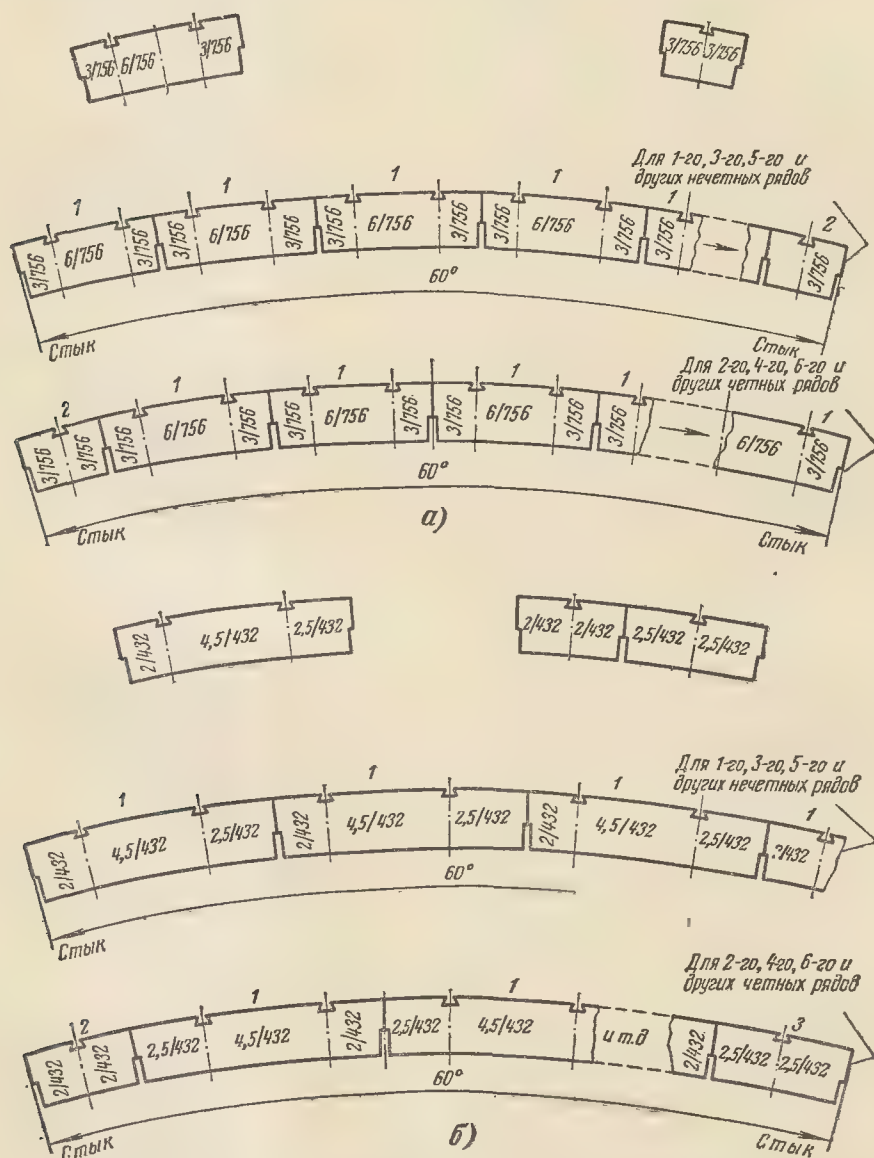 3/756 6/756 3/756
3/756 3/756
Для 1-го, 3-го, 5-го и
других нечетных рядов
1 1 1 1 1 2
3/756 6/756 3/756 3/756 6/756 3/756 3/756 6/756 3/756 3/756 6/756 3/756 3/756 3/756
60°
Стык Стык
Для 2-го, 4-го, 6-го и
других четных рядов
2 1 1 1 1 1
3/756 3/756 3/756 6/756 3/756 3/756 6/756 3/756 3/756 6/756 3/756 3/756 6/756 3/756
60°
Стык Стык
а)
2/432 4,5/432 2,5/432
2/432 2/432 2,5/432 2,5/432
Для 1-го, 3-го, 5-го и
других нечетных рядов
1 1 1 1
2/432 4,5/432 2,5/432 2/432 4,5/432 2,5/432 2/432 4,5/432 2,5/432
60°
Стык
Для 2-го, 4-го, 6-го и
других четных рядов
2 1 1 3
2/432 2/432 2,5/432 4,5/432 2/432 2,5/432 4,5/432 и т.д 2/432 2,5/432 2,5/432
60°
Стык Стык
б)